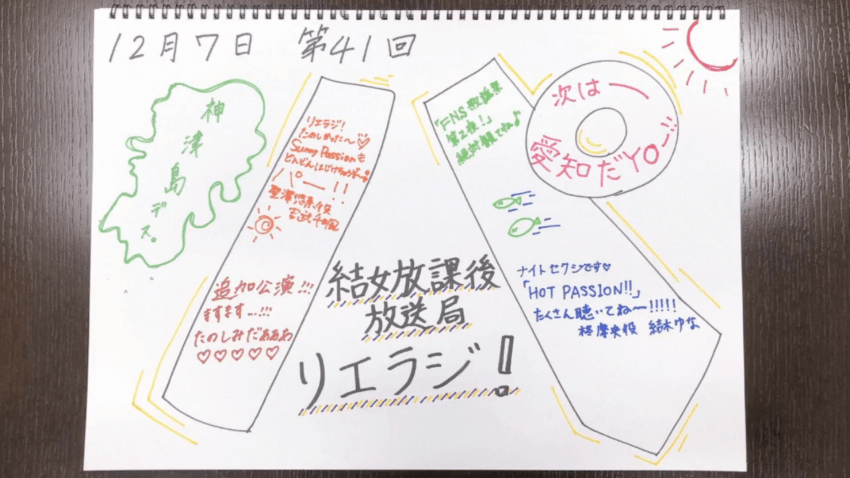 12月7日 第41回
神津島デス。
リエラジ!
たのしかった〜♡
Sunny Passionも
どんどんはじけちゃうぞー
ハ°ー!!
聖澤悠奈役
吉武千颯
追加公演!!!
ますます...!!!
たのしみだぁぁぁ
♡♡♡♡♡
「FNS歌謡祭
第2夜!」
絶対観てね♪
次はー
愛知だYO〜!!
ナイトセクシです♡
「HOT PASSION!!」
たくさん聴いてね〜!!!!!
柊摩央役 結木ゆな
結女放課後
放送局
リエラジ!